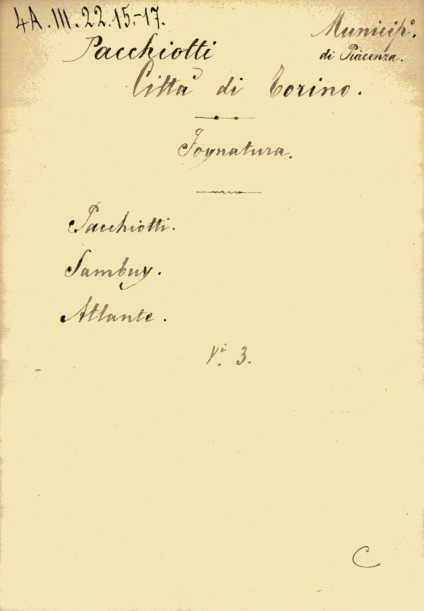 4A.III.22.15-17.
Municip.º
Pacchiotti
di Piacenza.
Città di Torino.
Fognatura.
Pacchiotti.
Sambuy.
Atlante.
V.i 3.
C